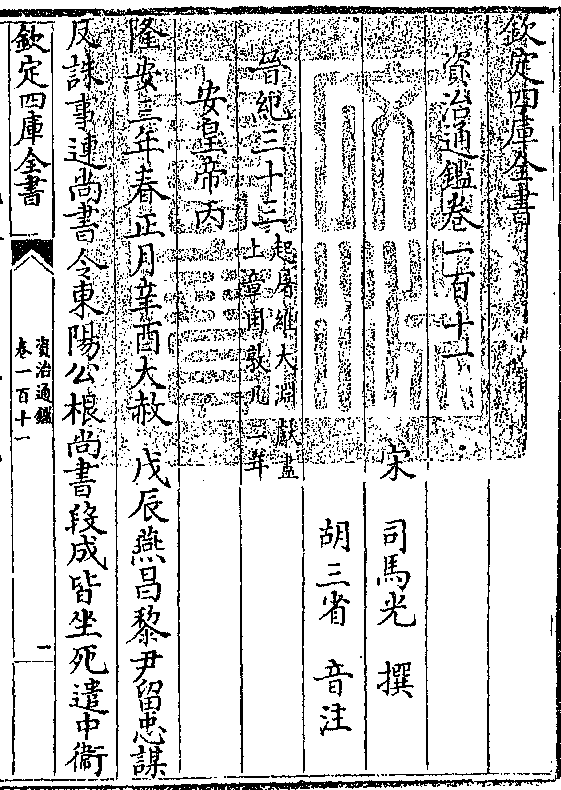 欽定四庫全書
資治通鑑卷一百十一
宋 司馬光 撰
胡三省 音注
晉紀三十三起屠維大淵獻盡
上章困敦凡二年
安皇帝丙
隆安三年春正月辛酉大赦 戊辰燕昌黎尹留忠謀
反誅事連尚書令東陽公根尚書段成皆坐死遣中衛
欽定四庫全書
資治通鑑
卷一百十一
一